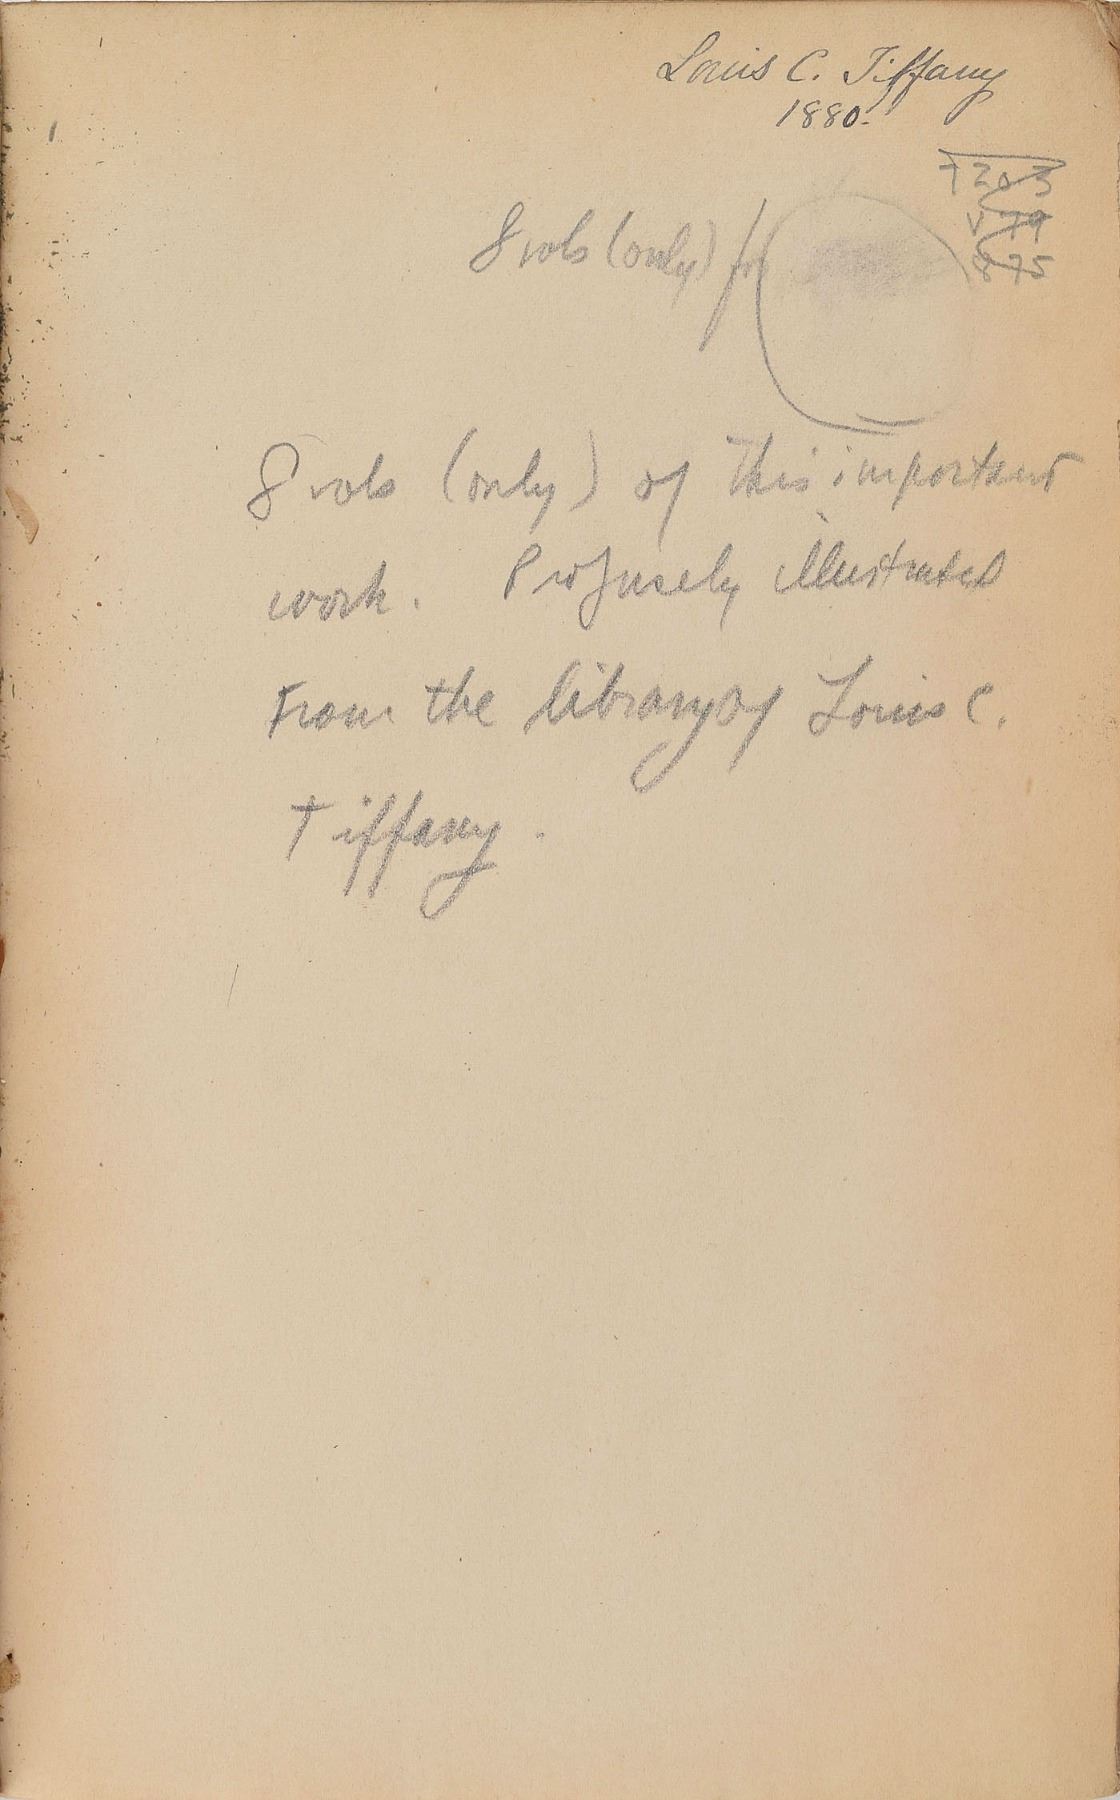 Louis C. Tiffany
1880.
8 vols (only) for
8 vols (only) of this important
work. Profusely illustrated
From the library of Louis C.
Tiffany.